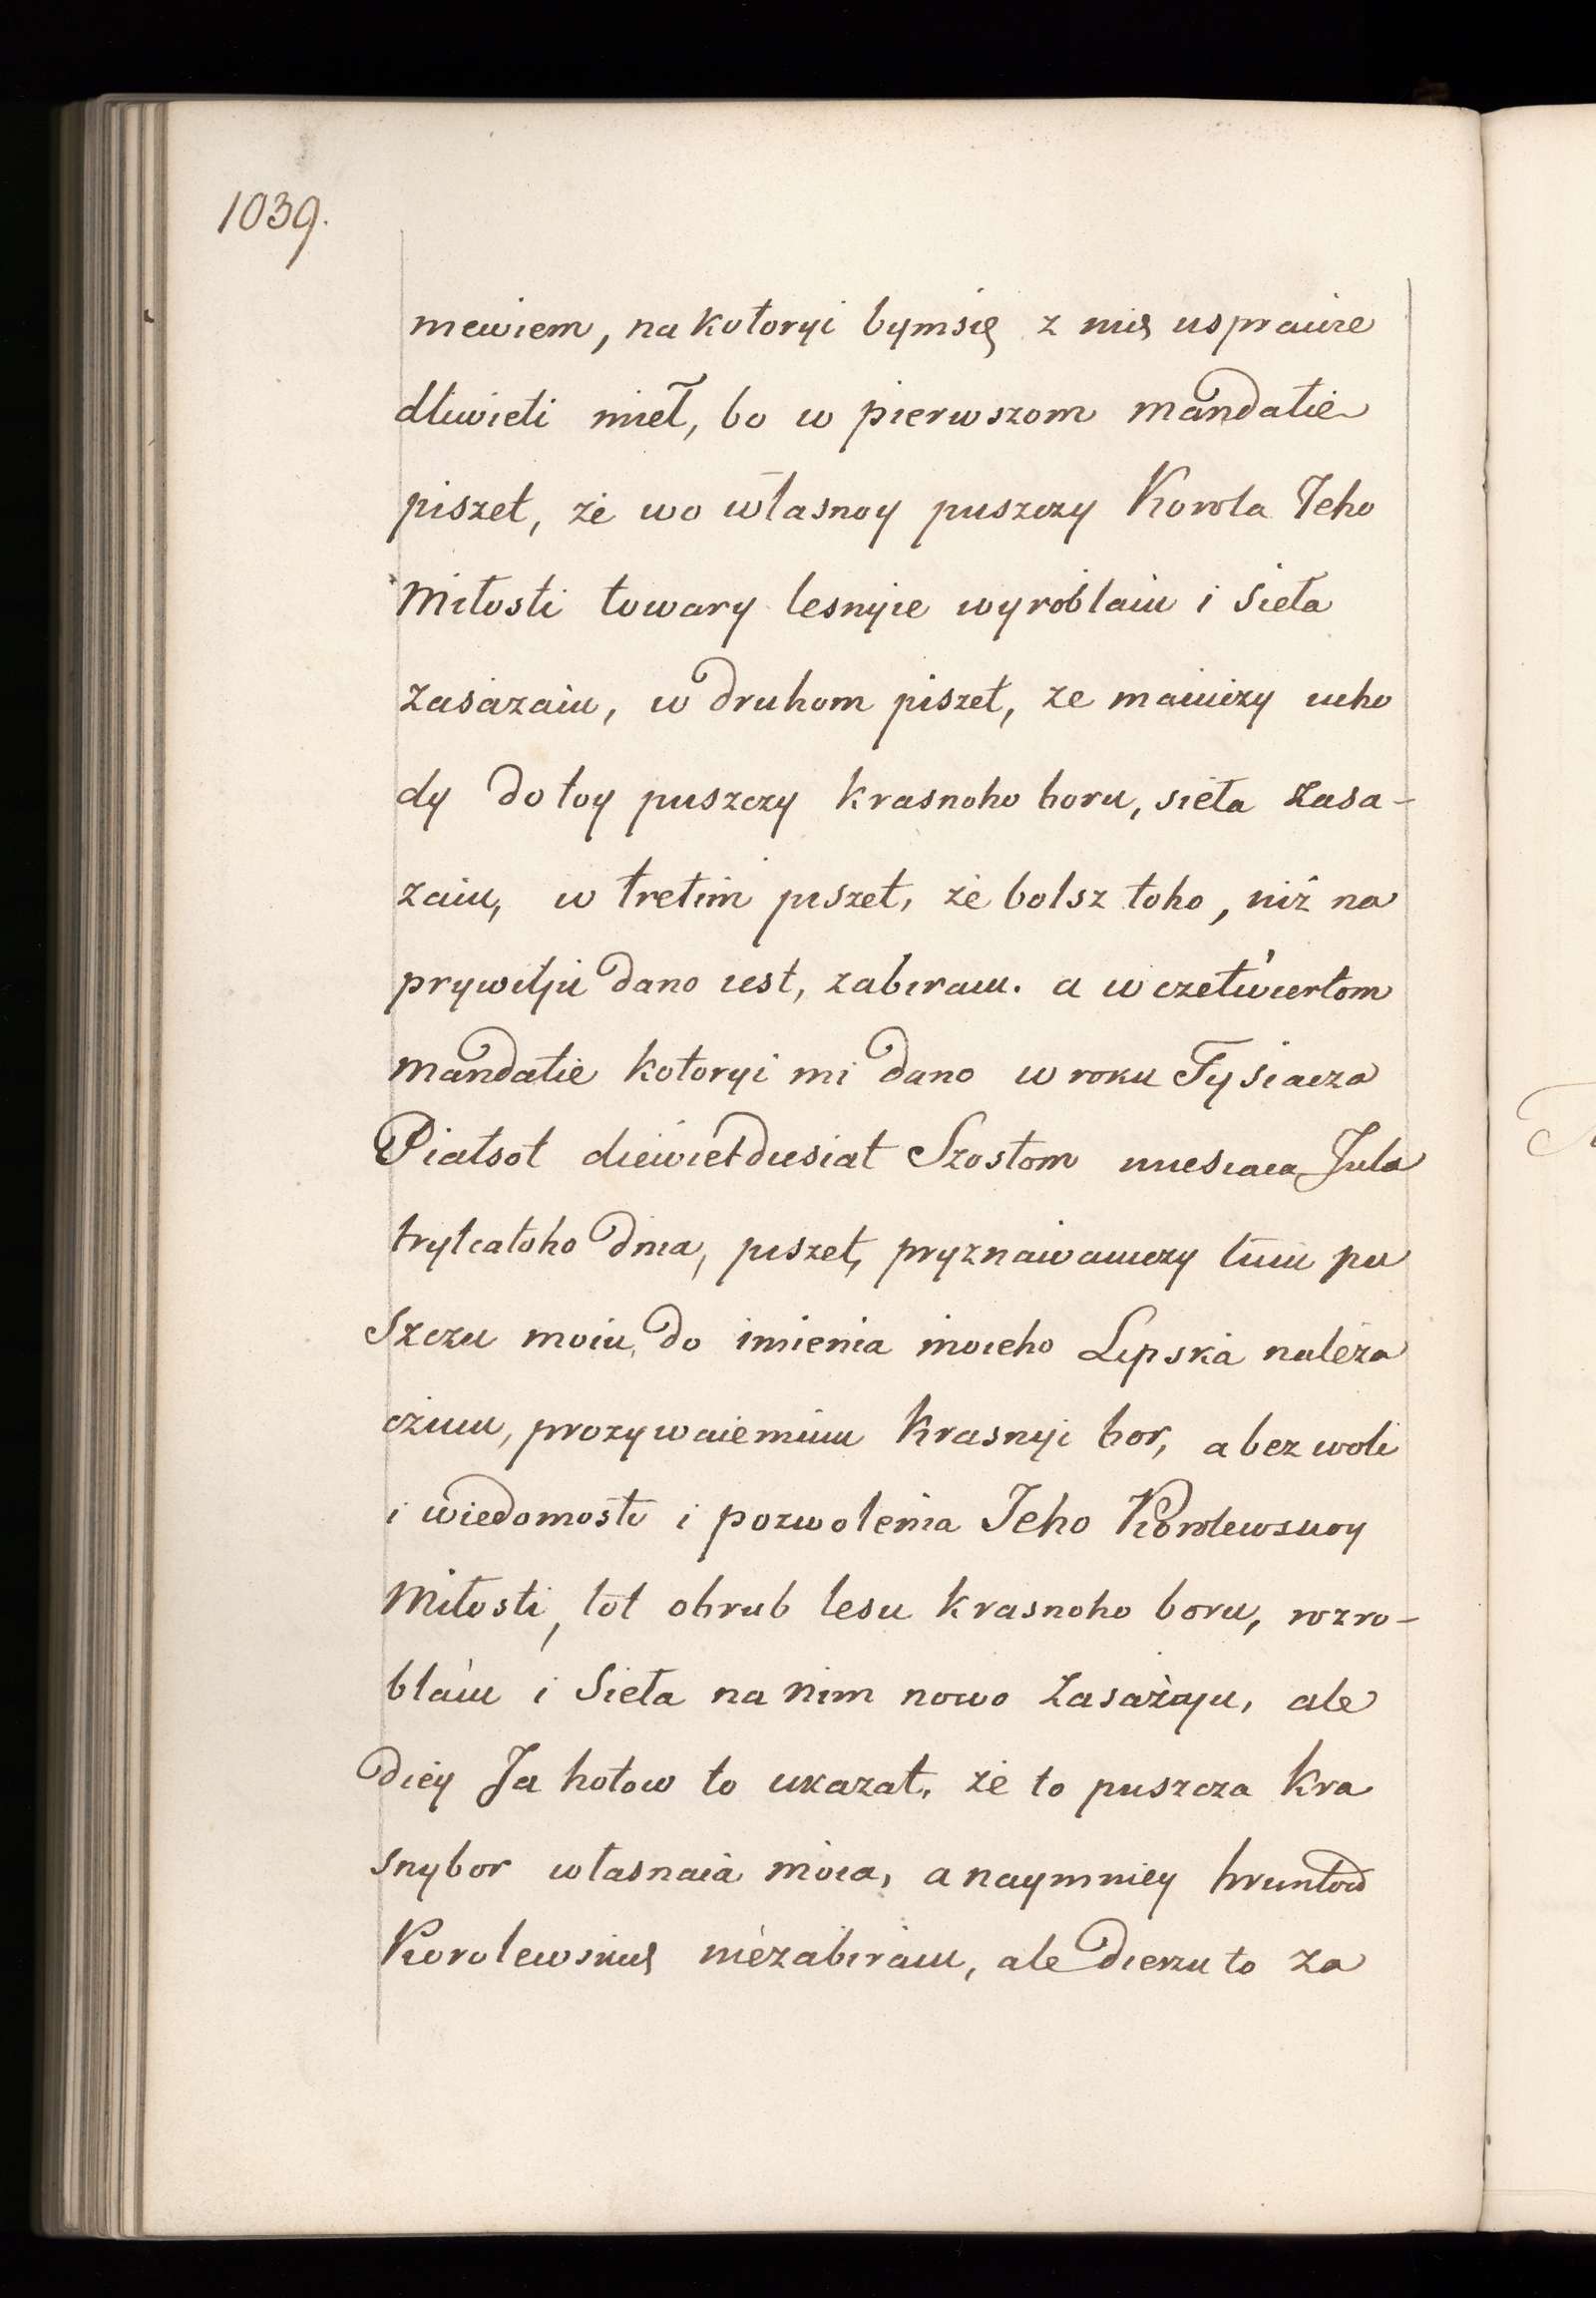 1039.
niewiem, na kotoryi bymsię z nich usprawie
dliwieti mieł, bo w pierwszom mandatie
piszet, że wo własnoy puszczy Korola Jeho
Miłosti towary lesnyie wyroblaiu i sieła
zasazaiu, w druhom piszet, ze maiuczy ucho
dy do toy puszczy krasnoho boru, sieła zasa-
zaiu, w tretim piszet, że bolsz toho, niż na
prywilju dano iest, zabiraiu. a w czetwiertom
mandatie kotoryi mi dano w roku Tysiacza
Piatsot diewietdiesiat Szostom miesiaca Jula
trytcatoho dnia, piszet, pryznaiwaiuczy tuiu pu
szczu moiu, do imienia moieho Lipska należa
cziuu, prozywaiemuiu Krasnyi bor, a bez woli
i wiedomosti i pozwolenia Jeho Korolewskoy
Miłosti, tot obrub lesu krasnoho boru, rozro-
blaiu i Sieła na nim nowo zasażaju, ale
diey Ja hotow to ukazat, że to puszcza kra
snybor własnaia moia, a naymniey hruntow
Korolewskich niezabiraiu, ale dierzu to za